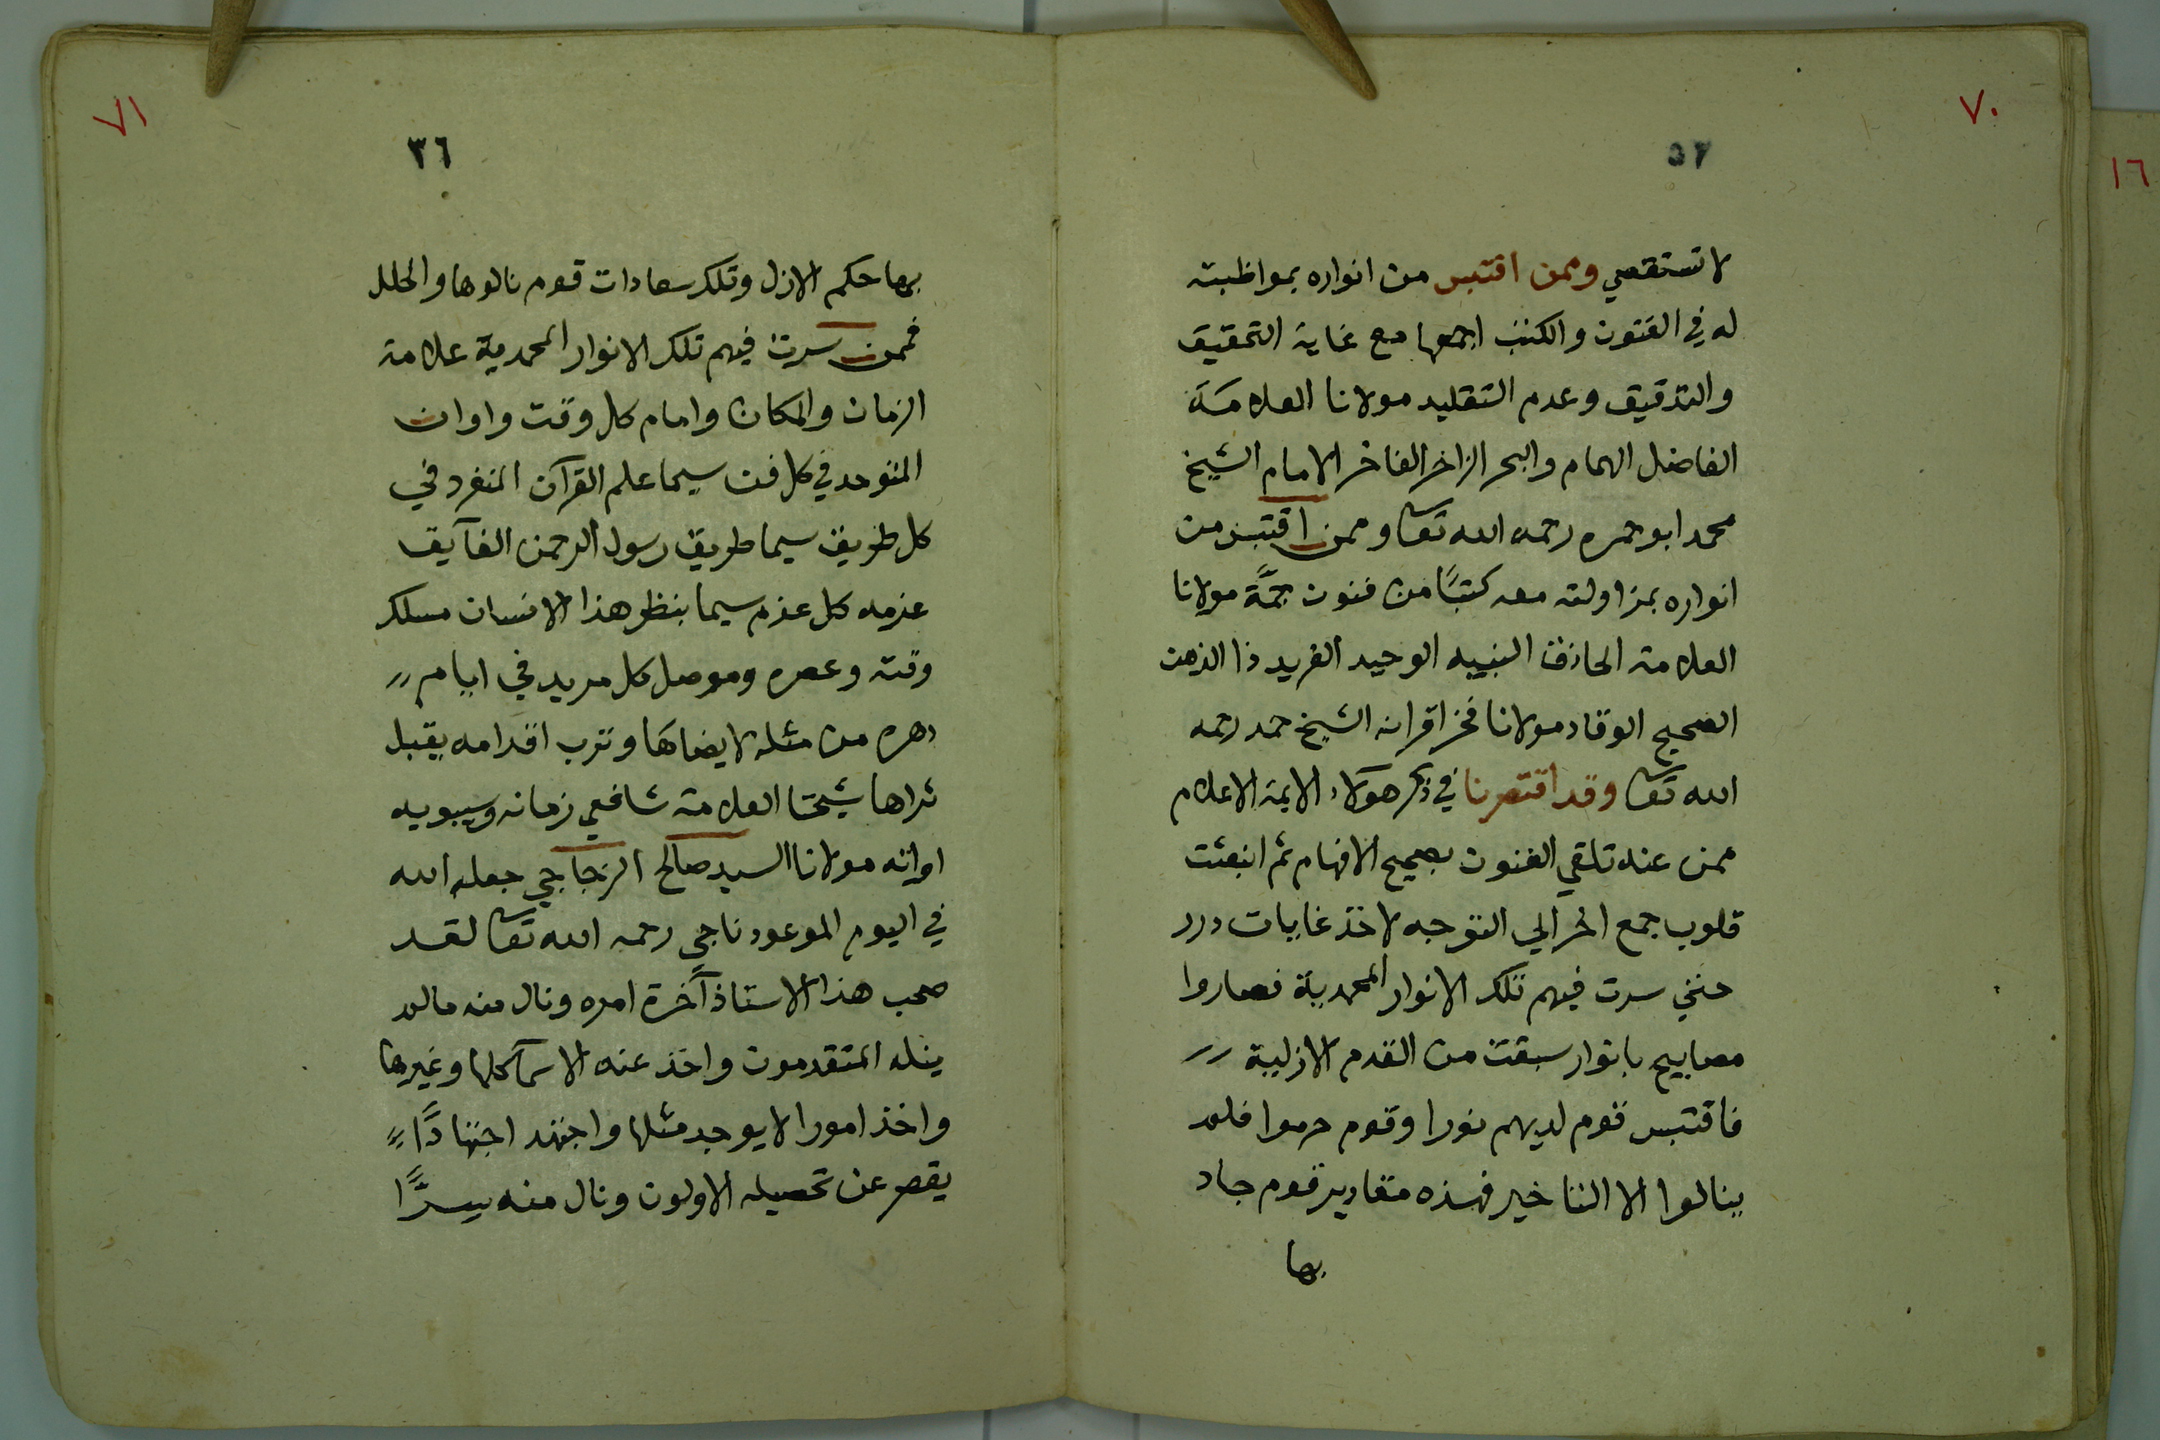 ٧٠
١٦
لا تستقصي وممن اقتبس من انواره بمواظبته
له في الفنون والكتب اجمعها مع غاية التحقيق
والتدقيق وعدم التقليد مولانا العلامة
الفاضل الهمام والبحر الزاخر الفاخر الامام الشيخ
محمد ابو حمره رحمه الله تعا وممن اقتبس من
انواره بمزاولته معه كتبًا من فنون جمّة مولانا
العلامة الحاذق النبيه الوحيد الفريد ذا الذهن
الصحيح الوقاد مولانا فخر اقرانه الشيخ حمد رحمه
الله تعا وقد اقتصرنا في ذكر هولاء الايمة الاعلام
ممن عنه تلقي الفنون بصحيح الافهام ثم انبعثت
قلوب جمع اخر الي التوجه لاخذ غايات درر
حتي سرت فيهم تلك الانوار المحمدية فصاروا
مصابيح بانوار سبقت من القدم الازلية
فاقتبس قوم لديهم نورا وقوم حرموا فلم
ينالوا الا التاخير فهذه مقادير قوم جاد
بها
٧١
٣٦
بها حكم الازل وتلك سعادات قوم نالوها والحلل
فممن سرت فيهم تلك الانوار المحمدية علامة
الزمان والمكان وامام كل وقت واوان
المتوحد في كل فن سيما علم القرآن المنفرد في
كل طريق سيما طريق رسول الرحمن الفآيق
عزمه كل عزم سيما بنظر هذا الانسان مسلك
وقته وعصره وموصل كل مريد في ايام
دهره من مثله لا يضاها وترب اقدامه يقبل
ثراها شيخنا العلامة شافعي زمانه وسيبويه
اوانه مولانا السيد صالح الزجاجي جعله الله
في اليوم الموعود ناجي رحمه الله تعا لقد
صحب هذا الاستاذ آخرة امره ونال منه مالم
ينله المتقدمون واخذ عنه الاسما كلها وغيرها
واخذ امورا لا يوجد مثلها واجتهد اجتهادًا
يقصر عن تحصيله الاولون ونال منه سرًّا